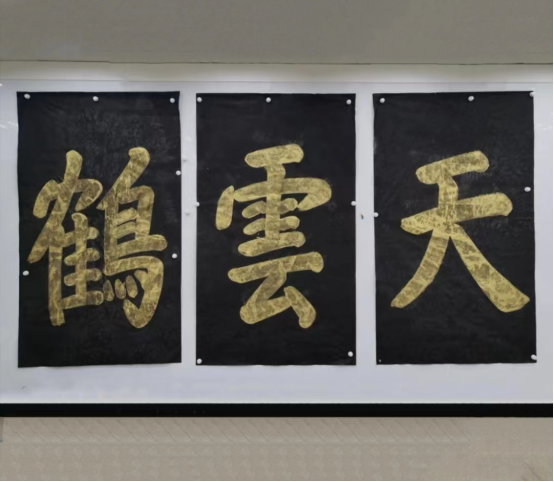 天雲鶴